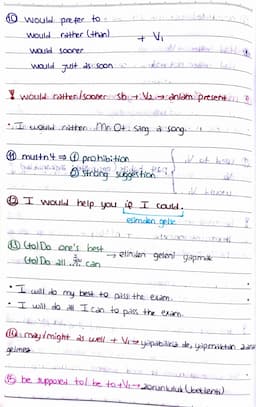 ⑩ would prefer to
would rather (than) + V₁
would sooner
would just as soon
! would rather/sooner sb + V₂ → anlam present
• I would rather Mr. Ot. sang a song.
⑪ mustn't ⇒ ① prohibition
② strong suggestion
⑫ I would help you if I could.
elimden gelse
⑬ (to) Do one's best → elinden geleni yapmak
(to) Do all can
• I will do my best to pass the exam.
• I will do all I can to pass the exam.
⑭ may/might as well + V₁ → yapabiliriz de, yapmaktan zarar
gelmez
⑮ be supposed to / be to + V₁ → zorunluluk (beklenti)